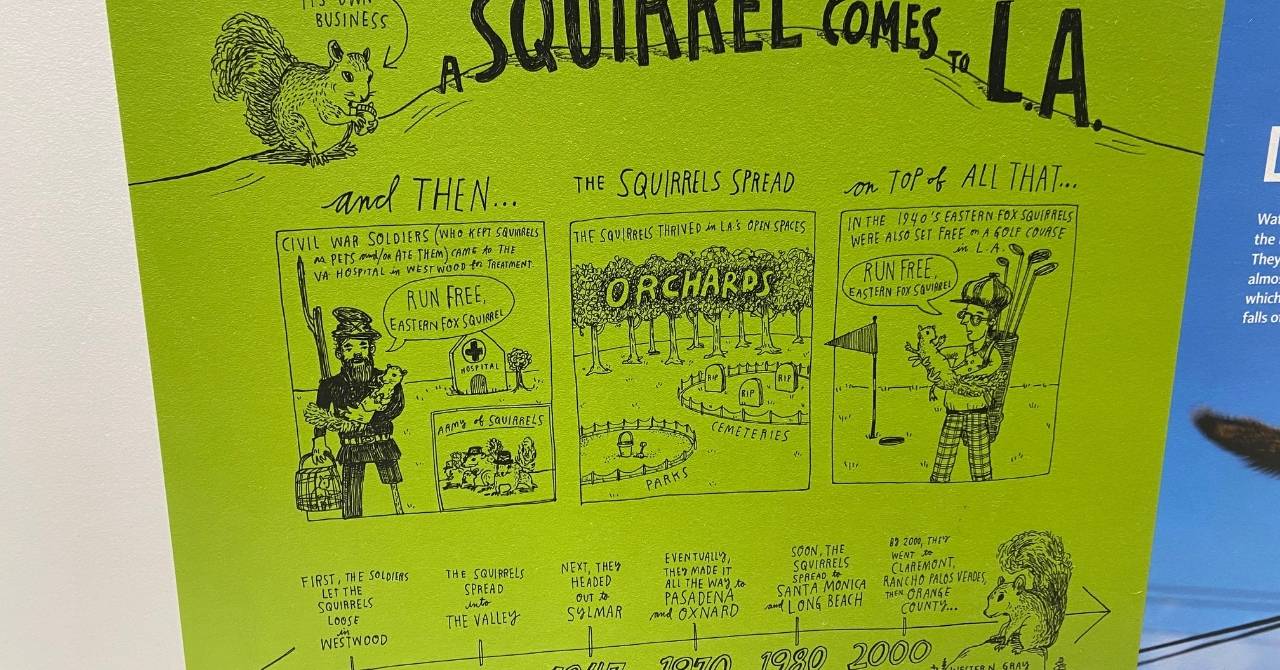 ITS OWN
BUSINESS
A SQUIRREL COMES TO L.A.
and THEN...
CIVIL WAR SOLDIERS (WHO KEPT SQUIRRELS
as PETS and/or ATE THEM) CAME to THE
VA HOSPITAL in WESTWOOD for TREATMENT.
RUN FREE,
EASTERN FOX SQUIRREL
HOSPITAL
ARMY of SQUIRRELS
THE SQUIRRELS SPREAD
THE SQUIRRELS THRIVED in LA'S OPEN SPACES
ORCHARDS
RIP
RIP
RIP
CEMETERIES
PARKS
on TOP of ALL THAT...
IN THE 1940'S EASTERN FOX SQUIRRELS
WERE ALSO SET FREE on A GOLF COURSE
in L.A.
RUN FREE,
EASTERN FOX SQUIRREL
FIRST, THE SOLDIERS
LET THE
SQUIRRELS
LOOSE
in
WESTWOOD
THE SQUIRRELS
SPREAD
into
THE VALLEY
NEXT, THEY
HEADED
OUT to
SYLMAR
EVENTUALLY,
THEY MADE IT
ALL THE WAY to
PASADENA
and OXNARD
SOON, THE
SQUIRRELS
SPREAD to
SANTA MONICA
and LONG BEACH
BY 2000, THEY
WENT to
CLAREMONT,
RANCHO PALOS VERDES,
THEN ORANGE
COUNTY...
1947
1970
1980
2000
WESTERN GRAY
Wat
the
They
almos
which
falls o